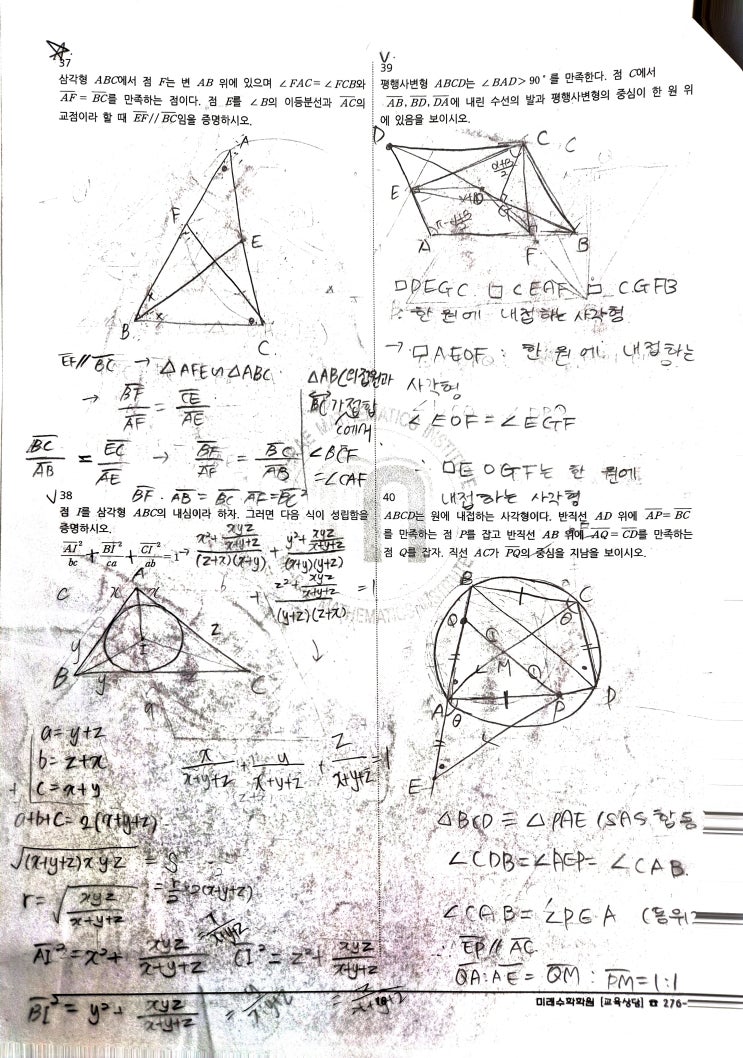 37
삼각형 ABC에서 점 F는 변 AB 위에 있으며 ∠FAC=∠FCB와
AF=BC를 만족하는 점이다. 점 E를 ∠B의 이등분선과 AC의
교점이라 할 때 EF//BC임을 증명하시오.
A
F
E
B
C
EF//BC → △AFE∽△ABC
→ BF/AF = CE/AE
BC/AB = EC/AE → BF/AF = BC/AB
BF · AB = BC · AF = BC²
△ABC의
BC가 접함
C에서
∠BCF
=∠CAF
V 38
점 I를 삼각형 ABC의 내심이라 하자. 그러면 다음 식이 성립함을
증명하시오.
AI²/bc + BI²/ca + CI²/ab = 1 → (x²+xyz/(x+y+z))/((z+x)(x+y)) + (y²+xyz/(x+y+z))/((x+y)(y+z))
+ (z²+xyz/(x+y+z))/((y+z)(z+x)) = 1
↓
A
C
x
x
y
z
I
B
y
C
a
a=y+z
b=z+x
+ c=x+y
a+b+c=2(x+y+z)
x/(x+y+z) + y/(x+y+z) + z/(x+y+z) = 1
√((x+y+z)xyz) = S
r=√(xyz/(x+y+z)) = r/2 · 2(x+y+z)
AI² = x² + xyz/(x+y+z) CI² = z² + xyz/(x+y+z)
BI² = y² + xyz/(x+y+z)
V
39
평행사변형 ABCD는 ∠BAD>90°를 만족한다. 점 C에서
AB, BD, DA에 내린 수선의 발과 평행사변형의 중심이 한 원 위
에 있음을 보이시오.
D
C
C
E
O
G
A
F
B
□DEGC □CEAF □CGFB
: 한 원에 내접하는 사각형
→ □AEOF : 한 원에 내접하는
사각형
∠EOF=∠EGF
∴ □EOGF는 한 원에
내접하는 사각형
40
ABCD는 원에 내접하는 사각형이다. 반직선 AD 위에 AP=BC
를 만족하는 점 P를 잡고 반직선 AB 위에 AQ=CD를 만족하는
점 Q를 잡자. 직선 AC가 PQ의 중심을 지남을 보이시오.
B
C
Q
θ
M
A
P
D
θ
E
△BCD ≡ △PAE (SAS 합동
∠CDB=∠AEP=∠CAB.
∠CAB=∠PEA (동위
∴ EP//AC
QA:AE=QM:PM=1:1
미래수학학원 [교육상담] ☎ 276-